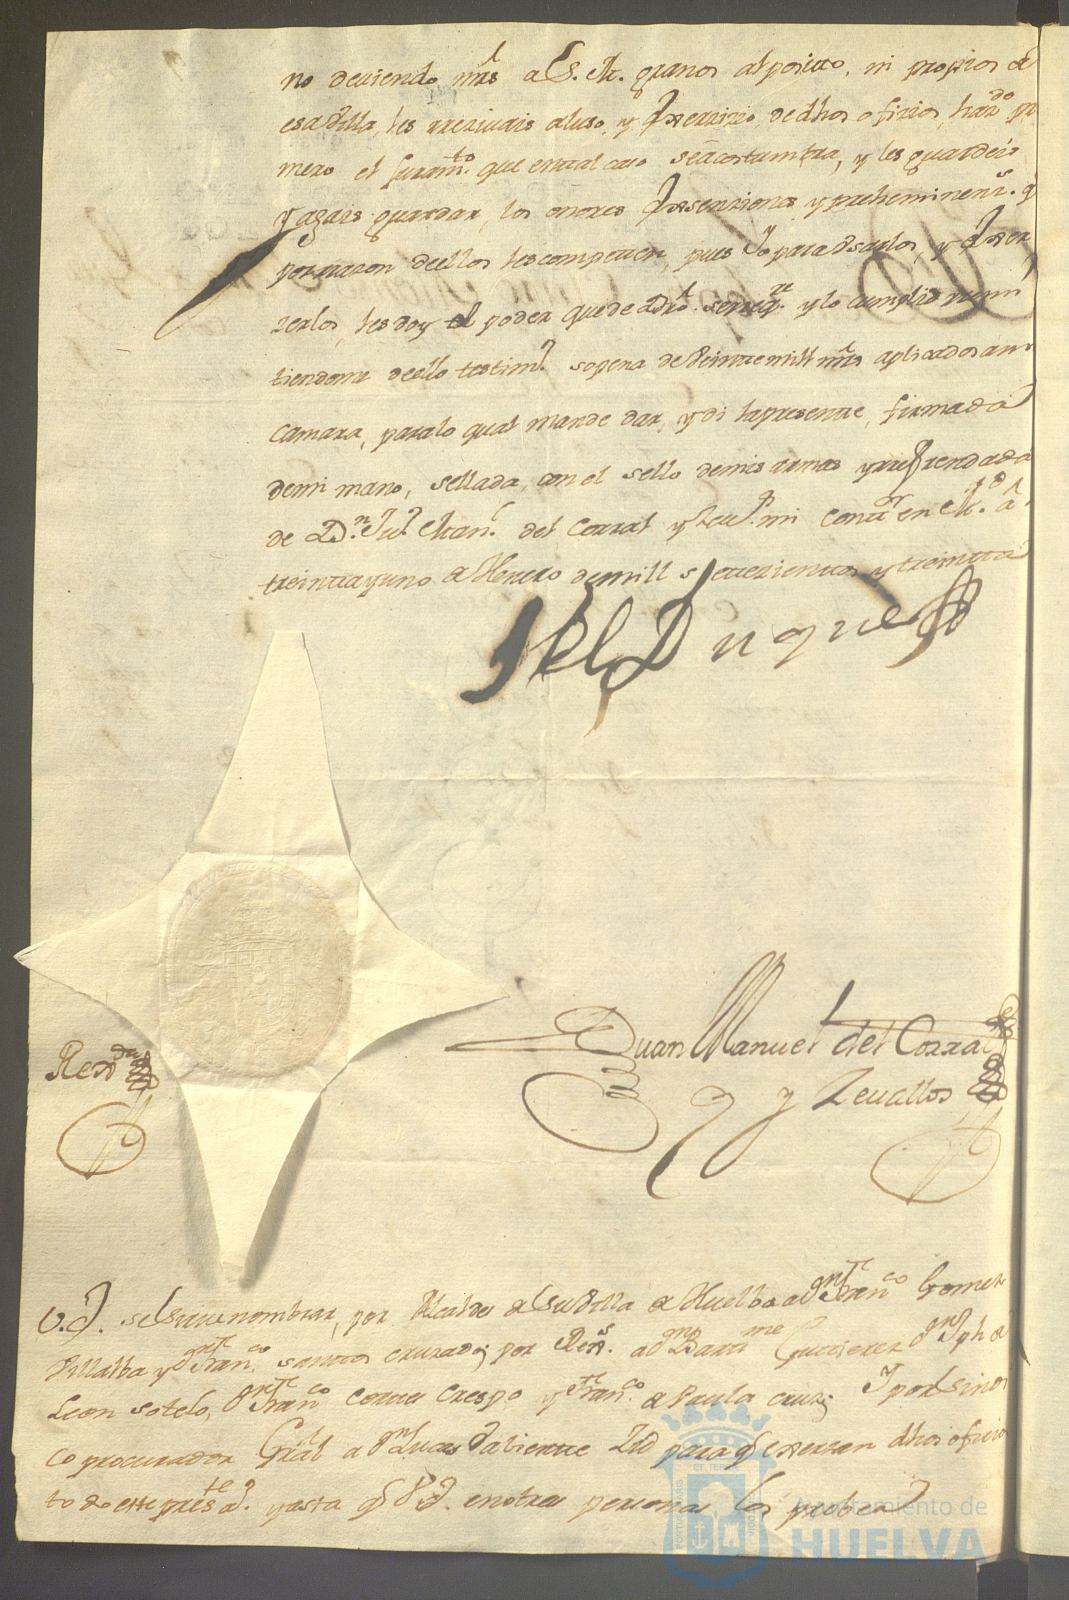 no deviendo mrs a S. M. granos al posito, ni propios de
esa Villa, les rrezivais al uso, y exerzizio de dhos ofizios, haz.do pri
mero el Juram.to que en tal caso se acostumbra, y les guardeis
y agais guardar, los onores exsenziones y preheminenz.s q
por razon de ellos les competen, pues Yo para usarlos, y exer
zerlos, les doy el poder que de dro. se req.re y lo cumplid remi
tiendome de ello testim.o sopena de Veinte mill mrs aplicados a mi
Camara, para lo qual mande dar, y di la presente, firmada
de mi mano, sellada, con el sello de mis armas y rrefrendada
de D.n Ju.o Man.l del Corral y Zeu.s mi Cont.r en M.d a
treinta y uno de Henero de mill setezientos y treinta
El Duque
Juan Manuel del Corral
y Zeuallos
Rex.da
V.E. se sirue nombrar, por Alcaldes de su Villa de Huelba a Dn Fran.co Gomez
Villalba y Dn Fran.co santos cruzado; por Rex.s a Dn Bart.me Gutierrez Dn Jph de
Leon sotelo, Dn Fran.co Correa Crespo y Fran.co de Paula cruz; Y por sindi
co procurador Gral a Dn Lucas Valiente para q exerzan dhos ofizios
todo este pres.te a.o y asta q V.E. en otras personas los probea
Ayuntamiento de
HUELVA